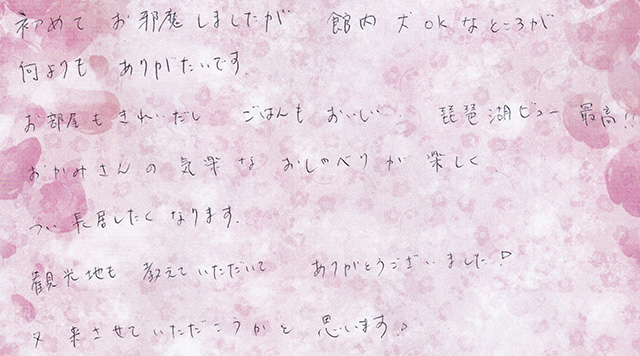 初めて お邪魔しましたが 館内 犬OKなところが
何よりも ありがたいです
お部屋もきれいだし ごはんもおいしい. 琵琶湖ビュー 最高!!
おかみさんの気楽なおしゃべりが楽しく
つい長居したくなります.
観光地も 教えていただいて ありがとうございました♪
又来させていただこうかと 思います♪